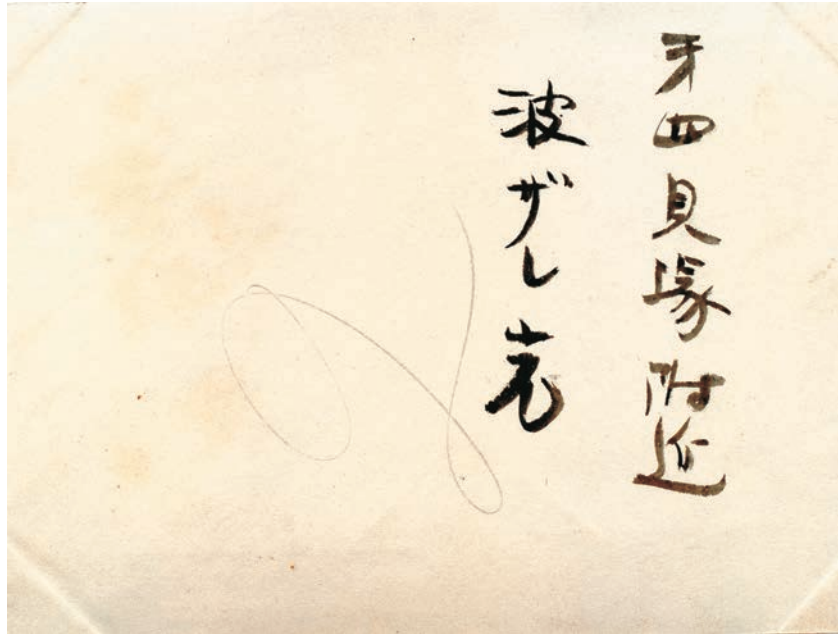 第四貝塚附近
波ザレ